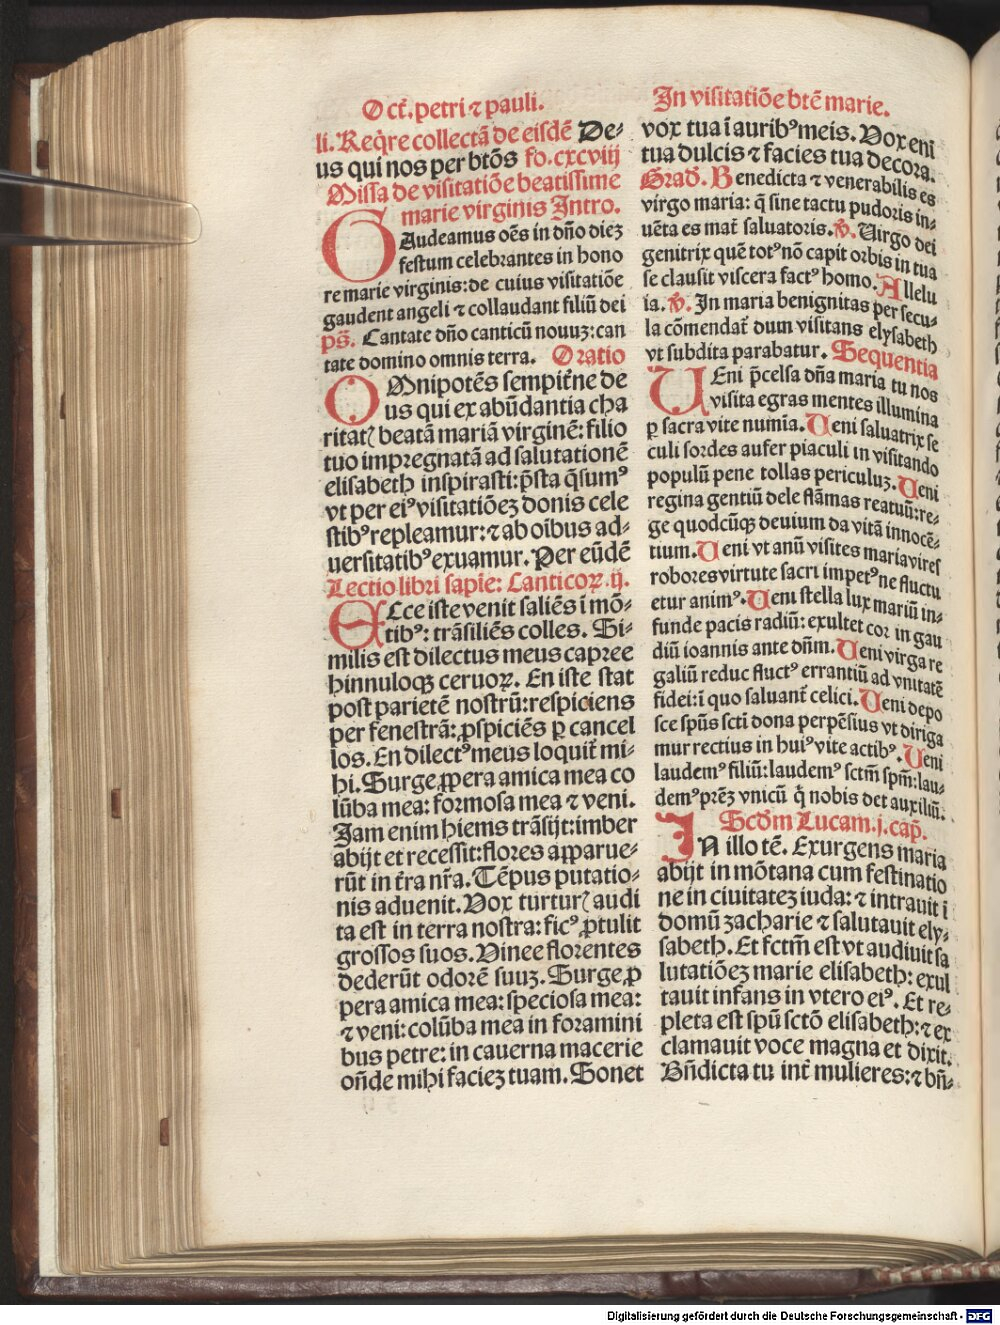 Oct̃. petri ⁊ pauli.
li. Req̃re collectã de eisdẽ De⸗
us qui nos per btõs fo. cxcviij
Missa de visitatiõe beatissime
marie virginis Intro.
GAudeamus oẽs in dño diez
festum celebrantes in hono
re marie virginis: de cuius visitatiõe
gaudent angeli ⁊ collaudant filiũ dei
ps̃. Cantate dño canticũ nouuz: can
tate domino omnis terra. Oratio
OMnipotẽs sempit̃ne de
us qui ex abũdantia cha
ritatꝭ beatã mariã virginẽ: filio
tuo impregnatã ad salutationẽ
elisabeth inspirasti: p̃sta q̃sumꝰ
vt per eiꝰ visitatiõez donis cele
stibꝰ repleamur: ⁊ ab oĩbus ad⸗
uersitatibꝰ exuamur. Per eũdẽ
Lectio libri sapiẽ: Canticoꝝ. ij.
ECce iste venit saliẽs ĩ mõ⸗
tibꝰ: trãsiliẽs colles. Si⸗
milis est dilectus meus capree
hinnuloqꝫ ceruoꝝ. En iste stat
post parietẽ nostrũ: respiciens
per fenestrã: ꝓspiciẽs ꝑ cancel
los. En dilectꝰ meus loquit̃ mi⸗
hi. Surge ꝓpera amica mea co
lũba mea: formosa mea ⁊ veni.
Jam enim hiems trãsijt: imber
abijt et recessit: flores apparue⸗
rũt in t̃ra nr̃a. Tẽpus putatio⸗
nis aduenit. Vox turturꝭ audi
ta est in terra nostra: ficꝰ ꝓtulit
grossos suos. Vinee florentes
dederũt odorẽ suuz. Surge ꝓ
pera amica mea: speciosa mea:
⁊ veni: colũba mea in foramini
bus petre: in cauerna macerie
oñde mihi faciez tuam. Sonet
In visitatiõe btẽ marie.
vox tua ĩ auribꝰ meis. Vox enĩ
tua dulcis ⁊ facies tua decora.
Grad̃. Benedicta ⁊ venerabilis es
virgo maria: q̃ sine tactu pudoris in⸗
uẽta es mat̃ saluatoris. ℣. Uirgo dei
genitrix quẽ totꝰ nõ capit orbis in tua
se clausit viscera factꝰ homo. Allelu
ia. ℣. In maria benignitas per secu⸗
la cõmendat̃ dum visitans elysabeth
vt subdita parabatur. Sequentia
UEni p̃celsa dña maria tu nos
visita egras mentes illumina
ꝑ sacra vite numĩa. Ueni saluatrix se
culi sordes aufer piaculi in visitando
populũ pene tollas periculuz. Ueni
regina gentiũ dele flãmas reatuũ: re⸗
ge quodcũqꝫ deuium da vitã innocẽ⸗
tium. Ueni vt anũ visites maria vires
robores virtute sacri impetꝰ ne fluctu
etur animꝰ. Ueni stella lux mariũ in⸗
funde pacis radiũ: exultet cor in gau
diũ ioannis ante dñm. Ueni virga re
galiũ reduc fluctꝰ errantiũ ad vnitatẽ
fidei: ĩ quo saluant̃ celici. Ueni depo
sce spũs sctĩ dona perpẽsius vt diriga
mur rectius in huiꝰ vite actibꝰ. Ueni
laudemꝰ filiũ: laudemꝰ sctm̃ spm̃: lau⸗
demꝰ prẽz vnicũ q̃ nobis det auxiliũ.
Scd̃m Lucam. j. cap̃.
IN illo tẽ. Exurgens maria
abijt in mõtana cum festinatio
ne in ciuitatez iuda: ⁊ intrauit ĩ
domũ zacharie ⁊ salutauit ely⸗
sabeth. Et fctm̃ est vt audiuit sa
lutatiõez marie elisabeth: exul
tauit infans in vtero eiꝰ. Et re⸗
pleta est spũ sctõ elisabeth: ⁊ ex
clamauit voce magna et dixit.
Bñdicta tu int̃ mulieres: ⁊ bñ⸗
Digitalisierung gefördert durch die Deutsche Forschungsgemeinschaft - DFG